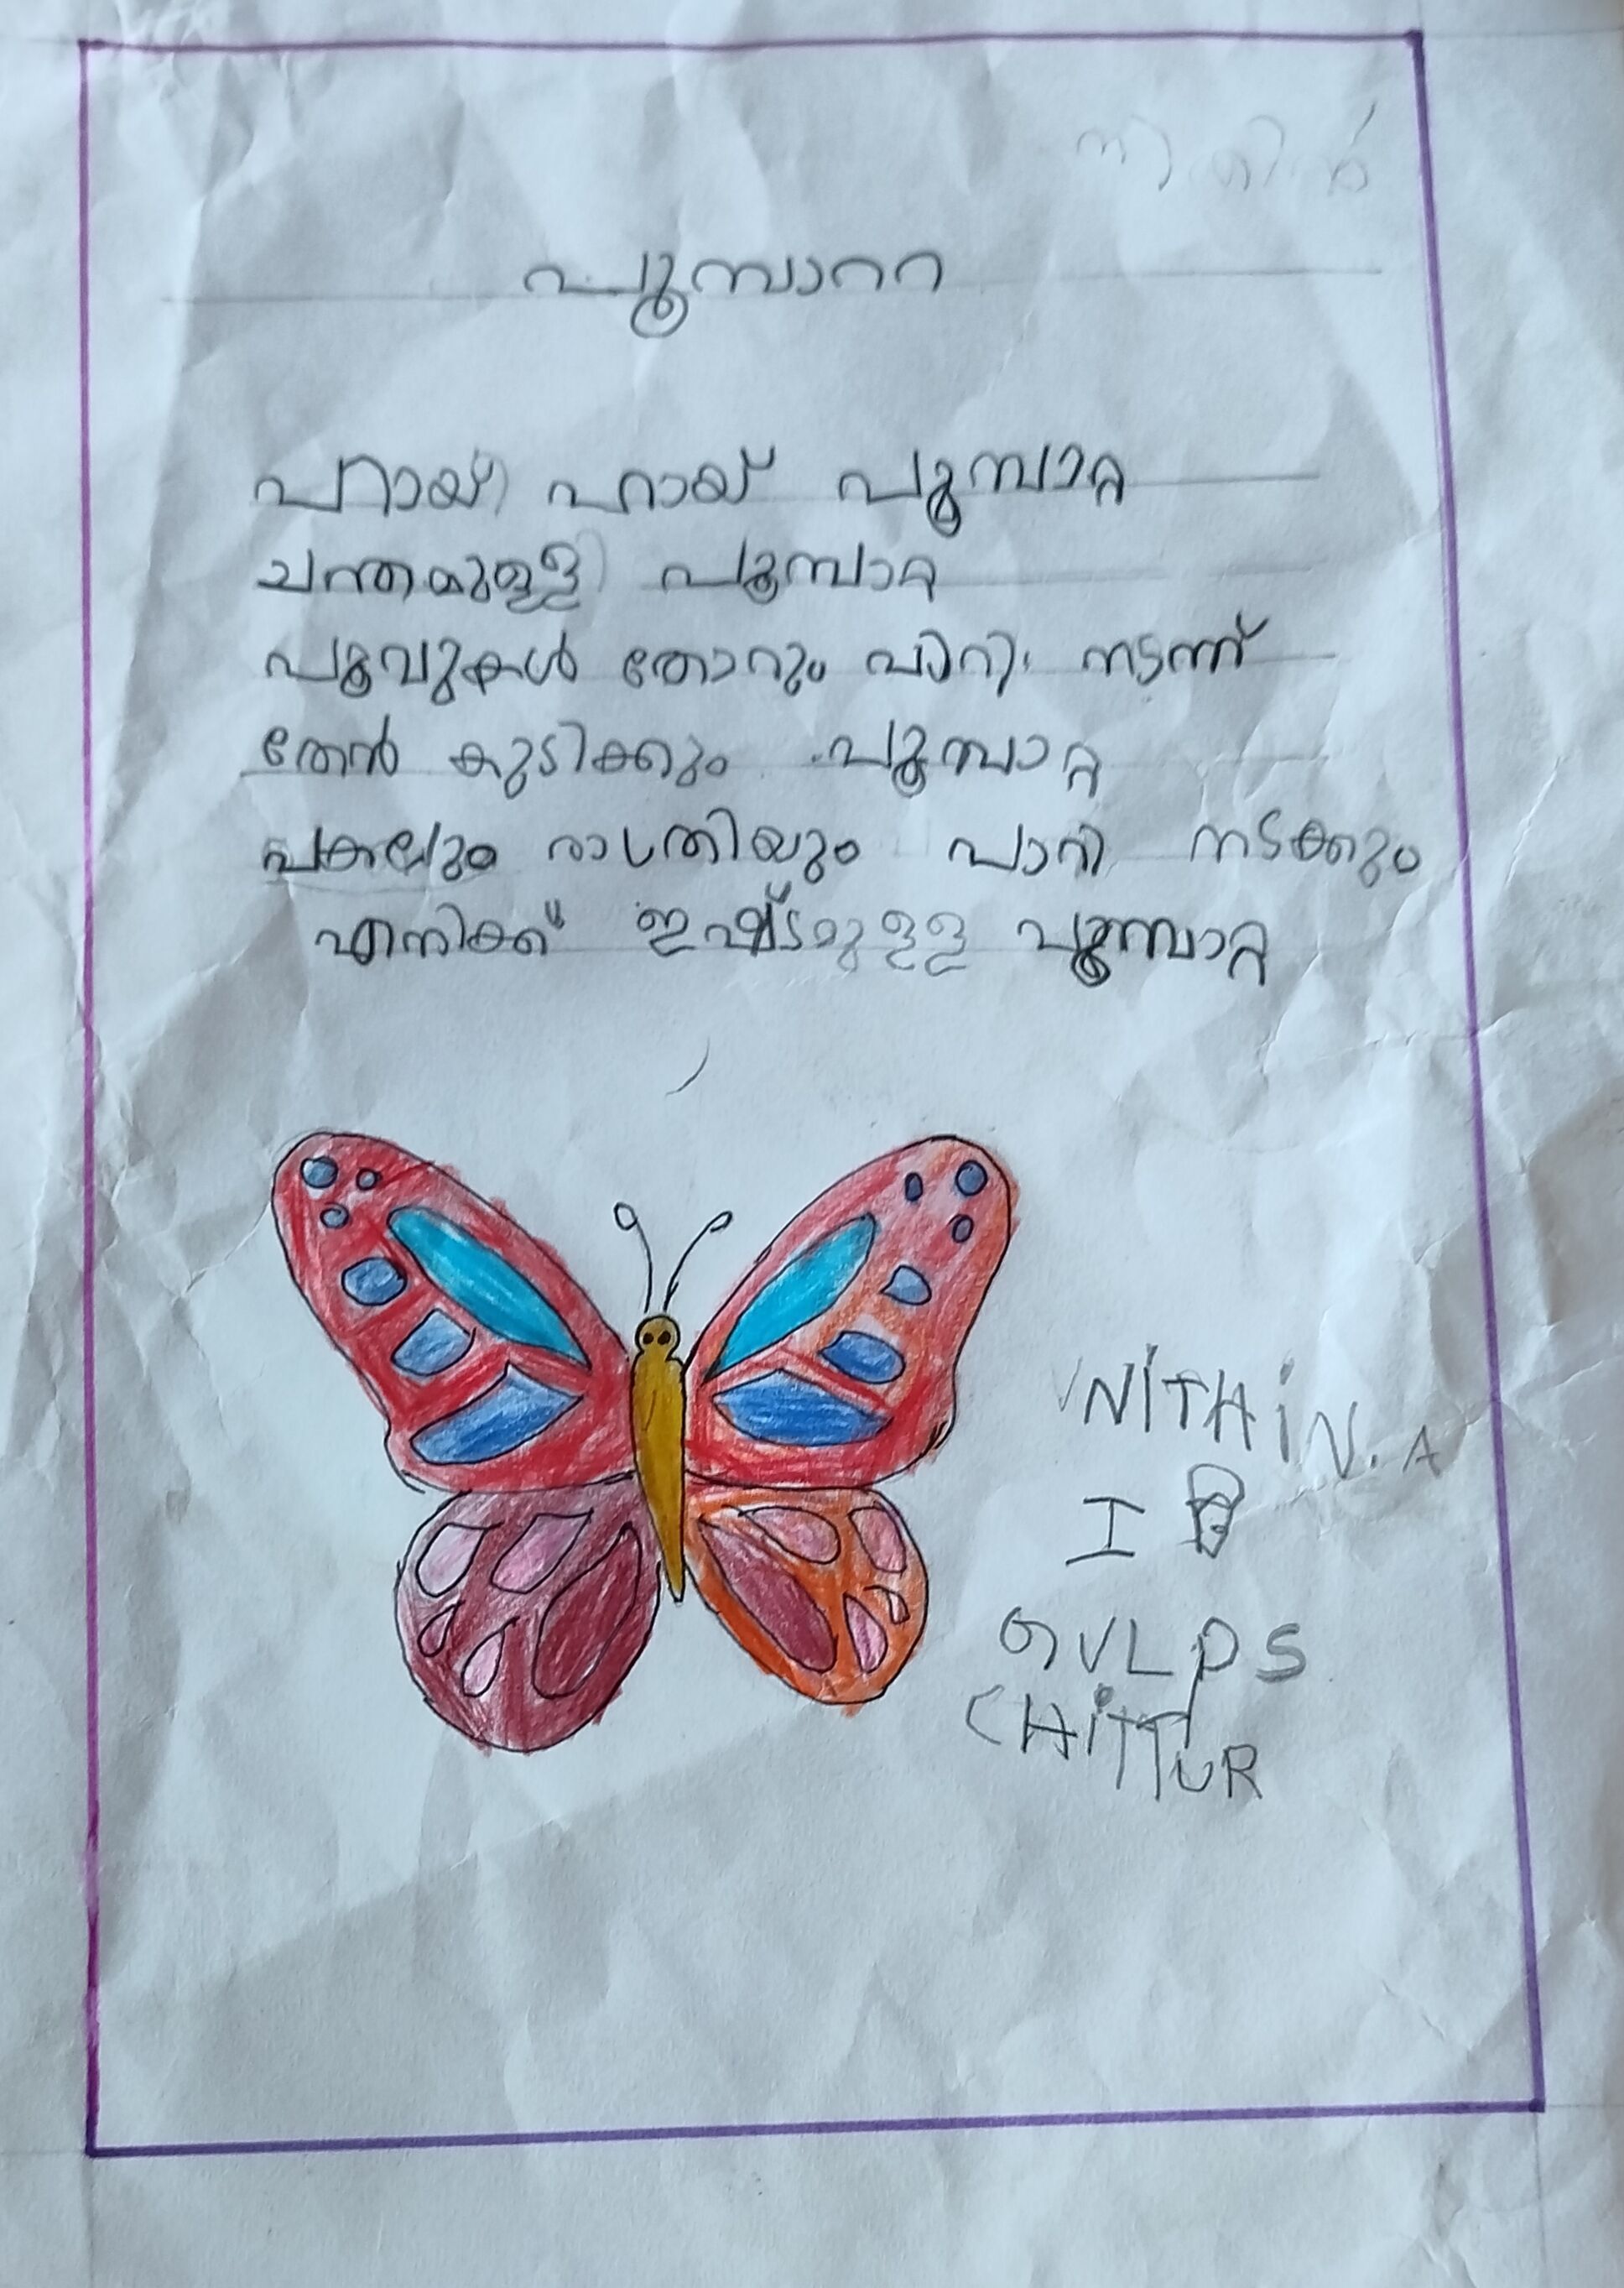 നിതിൻ
പൂമ്പാററ
ഹായ് ഹായ് പൂമ്പാറ്റ
ചന്തമുള്ള പൂമ്പാറ്റ
പൂവുകൾ തോറും പാറി നടന്ന്
തേൻ കുടിക്കും പൂമ്പാറ്റ
പകലും രാത്രിയും പാറി നടക്കും
എനിക്ക് ഇഷ്ടമുള്ള പൂമ്പാറ്റ
NITHIN. A
I B
GVLPS
CHITTUR